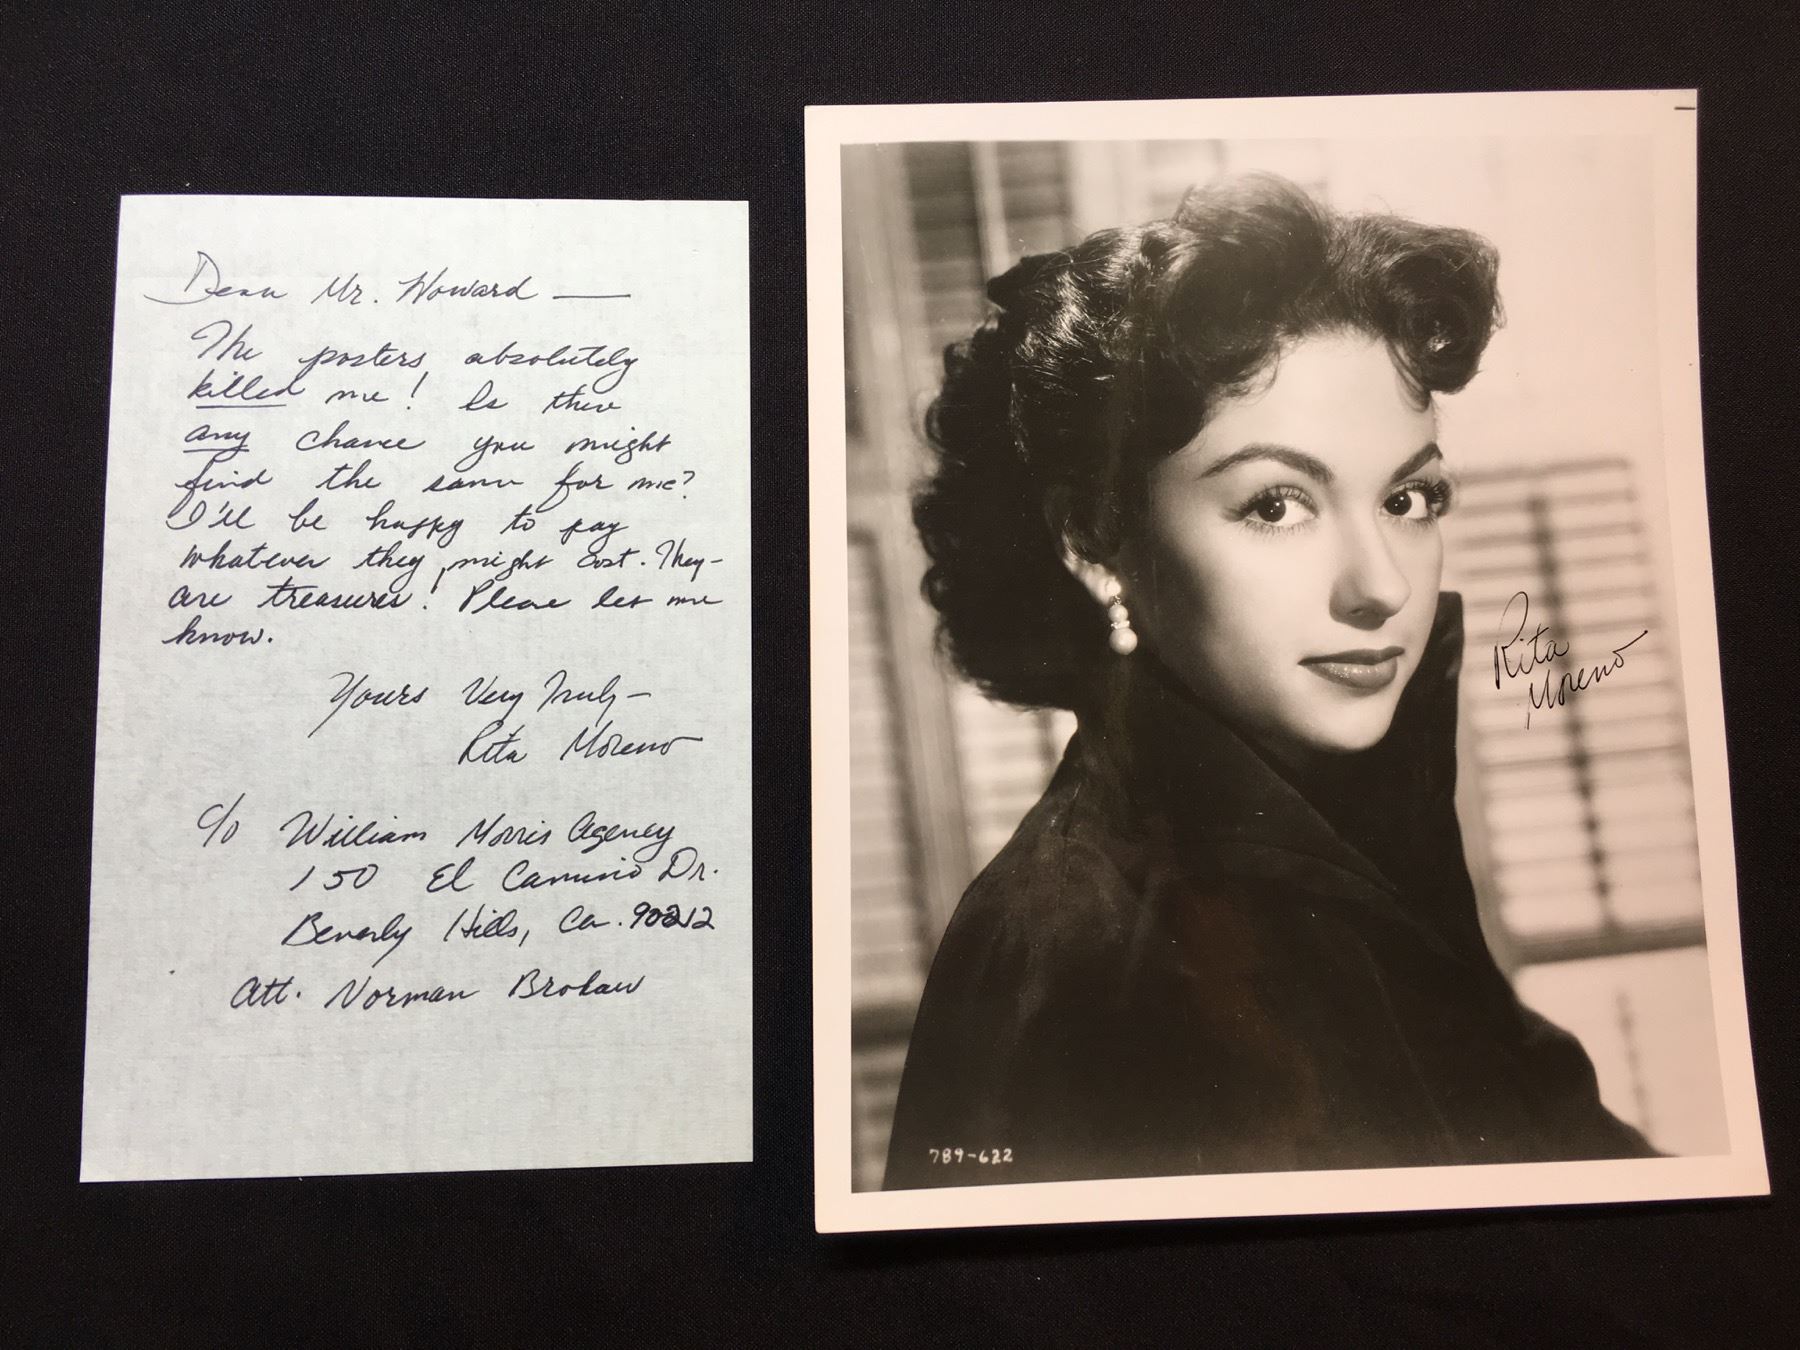 Dear Mr. Howard —
The posters absolutely
killed me! Is there
any chance you might
find the same for me?
I'll be happy to pay
whatever they might cost. They
are treasures! Please let me
know.
Yours Very Truly —
Rita Moreno
c/o William Morris Agency
150 El Camino Dr.
Beverly Hills, Ca. 90212
Att. Norman Brokaw
Rita
Moreno
789-622